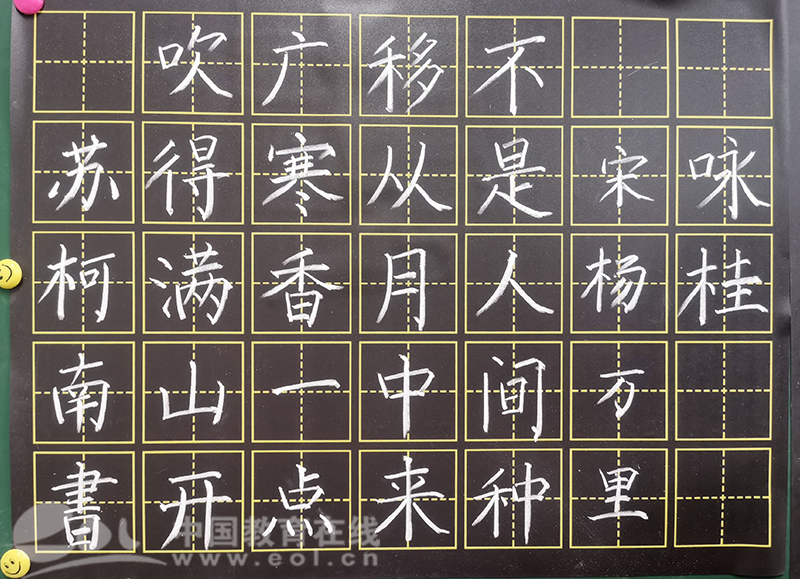 咏桂
宋杨万里
不是人间种
移从月中来
广寒香一点
吹得满山开
苏柯南書
中国教育在线
www.eol.cn